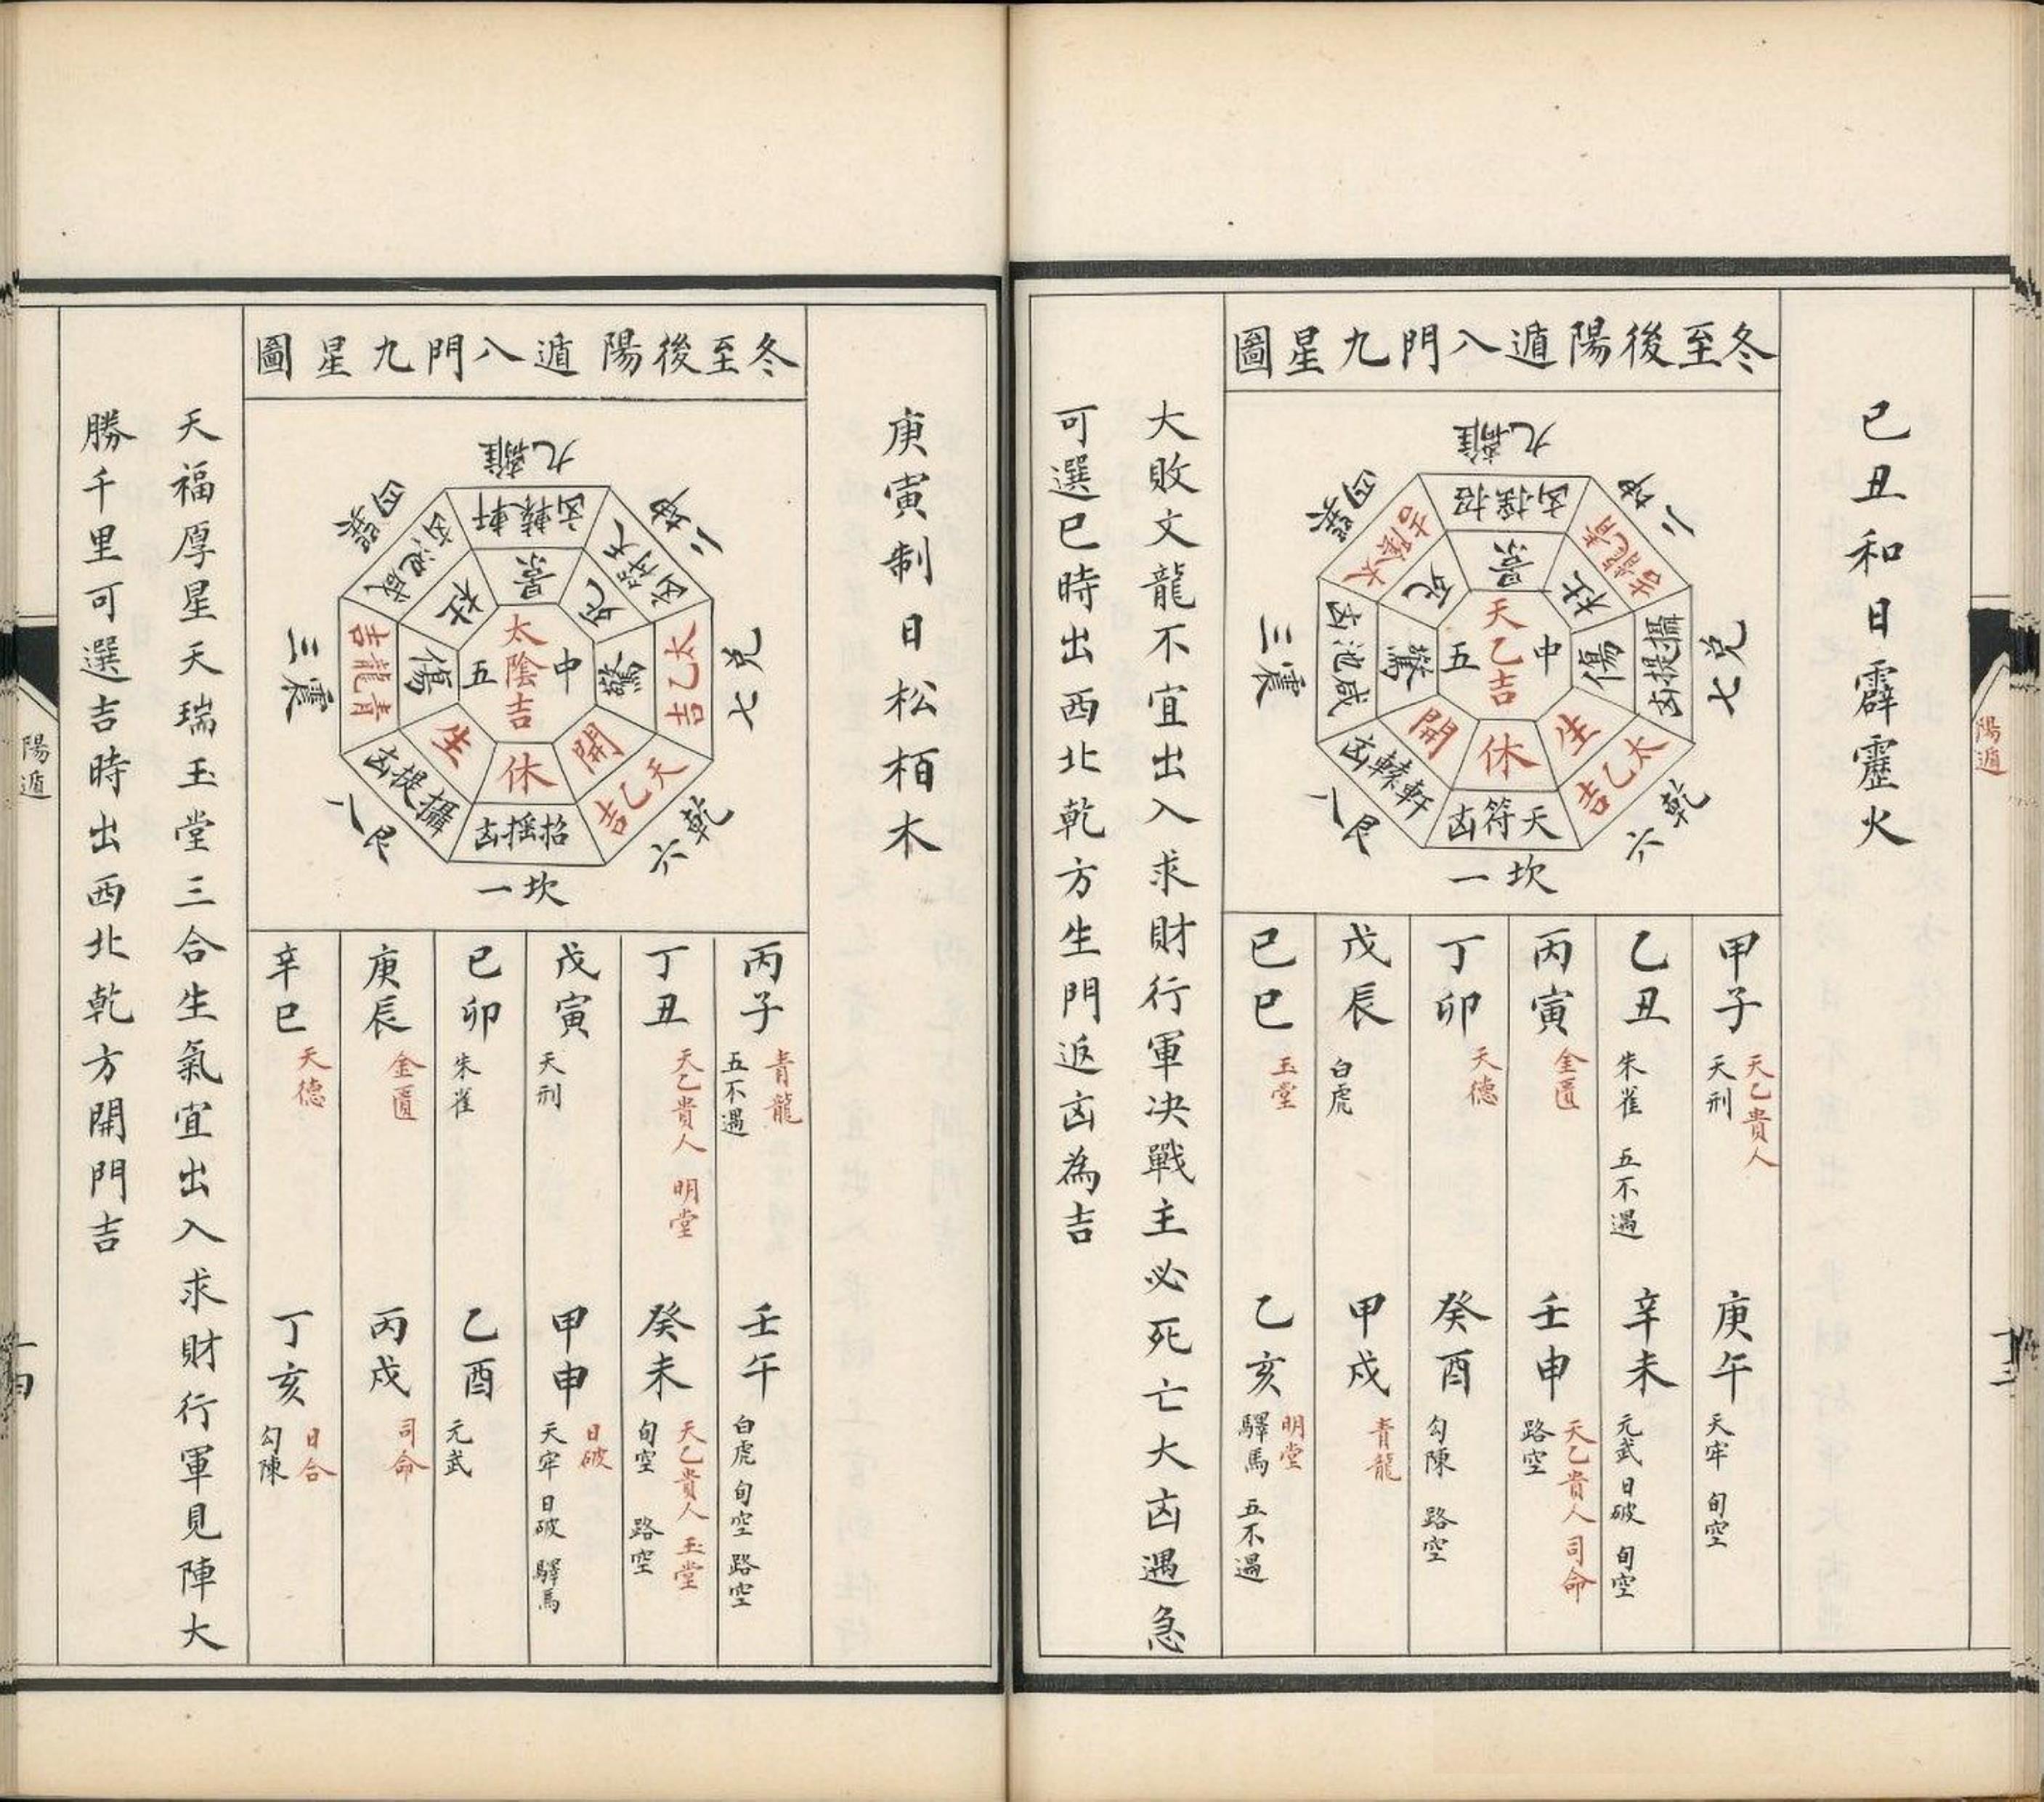 己丑和日霹靂火
冬至後陽遁八門九星圖
九離
二坤
七兌
六乾
一坎
八艮
三震
四巽
招搖凶
青龍吉
攝提凶
太乙吉
天符凶
軒轅凶
咸池凶
太陰吉
景
杜
傷
生
休
開
驚
死
中
天乙吉
五
甲子 天乙貴人 天刑
庚午 天牢 旬空
乙丑 朱雀 五不遇
辛未 元武 日破 旬空
丙寅 金匱
壬申 天乙貴人 司命 路空
丁卯 天德
癸酉 勾陳 路空
戊辰 白虎
甲戌 青龍
己巳 玉堂
乙亥 明堂 驛馬 五不遇
大敗文龍不宜出入求財行軍決戰主必死亡大凶遇急
可選巳時出西北乾方生門返凶為吉
陽遁
庚寅制日松栢木
冬至後陽遁八門九星圖
九離
二坤
七兌
六乾
一坎
八艮
三震
四巽
軒轅凶
天符凶
太乙吉
天乙吉
招搖凶
攝提凶
青龍吉
咸池凶
景
死
驚
開
休
生
傷
杜
中
太陰吉
五
丙子 青龍 五不遇
壬午 白虎 旬空 路空
丁丑 天乙貴人 明堂
癸未 天乙貴人 玉堂 旬空 路空
戊寅 天刑
甲申 日破 天牢 日破 驛馬
己卯 朱雀
乙酉 元武
庚辰 金匱
丙戌 司命
辛巳 天德
丁亥 日合 勾陳
天福厚星天瑞玉堂三合生氣宜出入求財行軍見陣大
勝千里可選吉時出西北乾方開門吉
陽遁